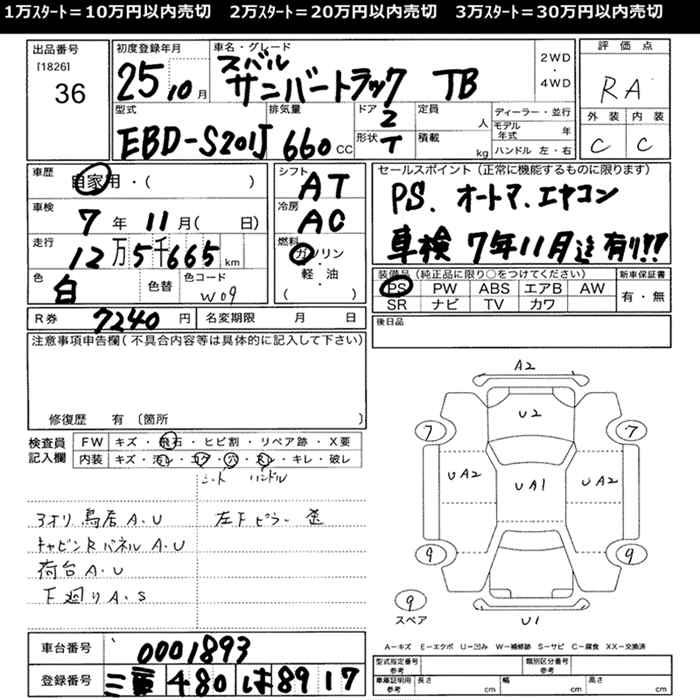 1万スタート＝10万円以内売切　2万スタート＝20万円以内売切　3万スタート＝30万円以内売切
出品番号
[1826]
36
初度登録年月
25 10月
車名・グレード
スバル
サニバートラック TB
2WD
・
4WD
評価点
RA
外装 内装
C C
型式
EBD-S201J
排気量
660 CC
ドア
2
形状
T
定員
人
積載
kg
ディーラー・並行
モデル年式 年
ハンドル 左・右
車歴
自家用・( )
車検
7年11月( 日)
走行
12万5千665km
色
白
色替
色コード
W09
シフト
AT
冷房
AC
燃料
ガソリン
・
軽・油
( )
セールスポイント (正常に機能するものに限ります)
PS. オートマ.エヤコン
車検 7年11月迄有り!!
装備品 (純正品に限り○をつけてください)
PS PW ABS エアB AW
SR ナビ TV カワ
新車保証書
有・無
R券 7240円
名変期限 月 日
後日品
注意事項申告欄 (不具合内容等は具体的に記入して下さい)
修復歴 有 〔箇所 〕
検査員
記入欄
FW キズ・飛石・ヒビ割・リペア跡・X要
内装 キズ・汚レ・コゲ・穴・スレ・キレ・破レ
シート ハンドル
3オリ 鳥居 A.U
左Fピラー 歪
キャビンRパネル A.U
荷台 A.U
下廻り A.S
A2
U2
7 7
UA2 UA1 UA2
9 9
9
スペア
U1
車台番号 0001893
登録番号 三重 480 は 8917
A－キズ E－エクボ U－凹み W－補修跡 S－サビ C－腐食 XX－交換済
型式指定番号
参考
類別区分番号
参考
車庫証明用
参考
長さ cm
幅 cm
高さ cm